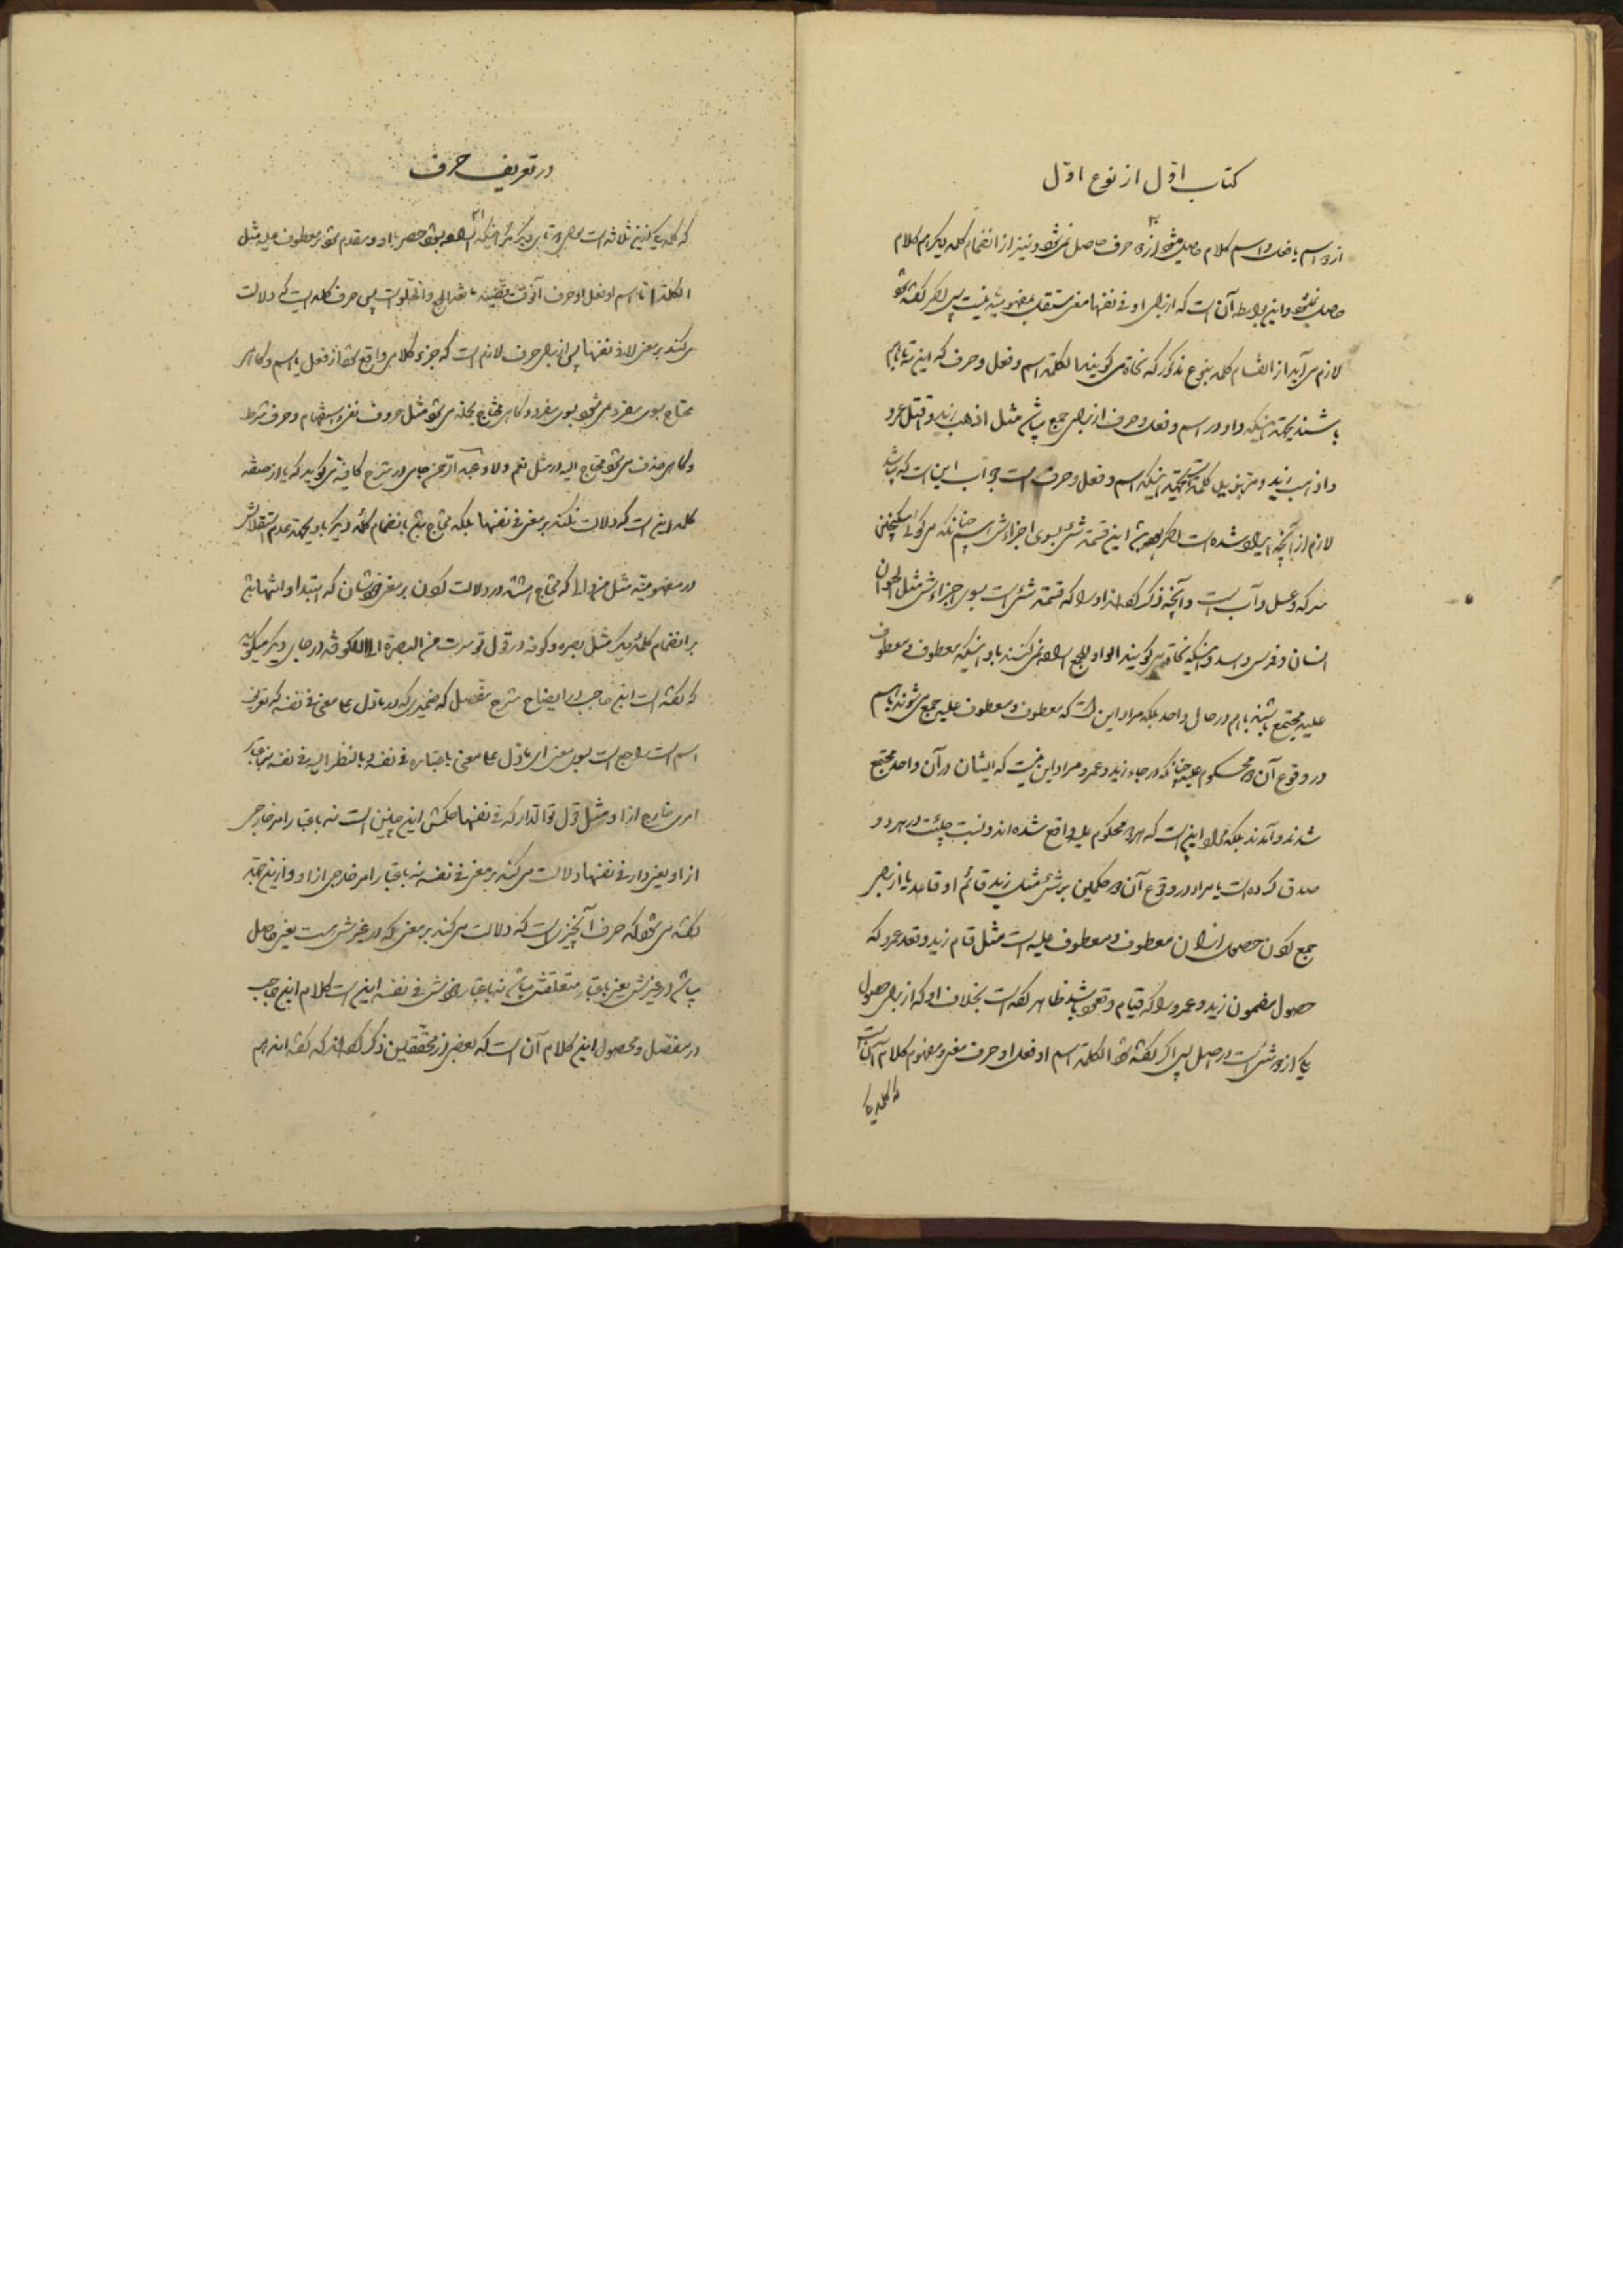 کتاب اوّل از نوع اوّل
از دو اسم یا فعل و اسم کلام حاصل میشود از دو حرف حاصل نمی‌شود و نیز از انضمام کلمه دیگر هم کلام
حاصل نمیشود و این بواسطه آن است که از برای او فی نفسها معنی مستقل بمفهومیته نیست پس اگر گفته شود
لازم می‌آید از انقسام کلمه بنوع مذکور که نحاة می‌گویند الکلمة اسم و فعل و حرف که این سه باهم
باشند بجهة اینکه واو در اسم و فعل و حرف از برای جمع باشد مثل اذهب زید و قتل عمرو
و اذهب زید کلمة بجهة اینکه اسم و فعل و حرف است جواب این است که
لازم از آنچه ایراد شده است اگر این قسمة شئ بسوی اجزائش چنانکه می‌گوئی سکنجبین
سرکه و عسل و آب است و آنچه ذکر کرده‌اند او را که قسمة شئ است بسوی جزئیاتش مثل الحیوان
انسان و فرس و اسد و اینکه نحاة می‌گویند الواو للجمع اراده نمی‌کنند باو اینکه معطوف و معطوف
علیه مجتمع باشند باهم در حال واحد بلکه مراد این است که معطوف و معطوف علیه جمع می‌شوند باهم
در وقوع آن دو محکوم علیه چنانکه در جاء زید و عمرو مراد این نیست که ایشان در آن واحد مجتمع
شدند و آمدند بلکه مراد اینست که هر دو محکوم علیه واقع شده‌اند و نسبت جیئت در هر دو
صدق کرده است یا مراد در وقوع آن دو حکمین بر شئ مثل زید قائم او قاعد یا از برای
جمع کردن حصول از آن معطوف و معطوف علیه است مثل قام زید و قعد عمرو که
حصول مضمون زید و عمرو را که قیام و قعود باشد ظاهر کرده است بخلاف او که از برای حصول
یکی از دو شئ است در اصل پس اگر گفته شود الکلمة اسم او فعل او حرف معنی و مفهوم کلام آن است
که کلمه یا
در تعریف حرف
که کلمه یکی از این ثلاثه است اراده بشود حصر باو و مقدم شود بر معطوف علیه مثل
الکلمة اما اسم او فعل او حرف پس حرف کلمه ایست که دلالت
می‌کند بر معنی لا فی نفسها پس از برای حرف لازم است که جزء کلامی واقع شود از فعل یا اسم و گاهی
محتاج بسوی مفرد می‌شود بسوی مفرد و گاهی محتاج بجمله می‌شود مثل حروف نفی و استفهام و حرف شرط
و گاهی حذف می‌شود محتاج الیه در مثل نعم و لا و عبد الرحمن جامی در شرح کافیه می‌گوید که یا از صفة
کلمه این است که دلالت نکند بر معنی فی نفسها بلکه محتاج باشد بانضمام کلمه دیگر باو بجهة عدم استقلالش
در مفهومیته مثل من و الی که محتاج هستند در دلالت کردن بر معنی خودشان که ابتداء و انتها باشد
بر انضمام کلمه دیگر مثل بصره و کوفه در قول تو سرت من البصرة الی الکوفه در جای دیگر میگوید
که گفته است ابن حاجب در ایضاح شرح مفصل که ضمیری که در مادل علی معنی فی نفسه که تعریف
اسم است راجع است بسوی معنی ای مادل علی معنی باعتباره فی نفسه و بالنظر الیه فی نفسه
امری خارج از او مثل قول تو الدار که فی نفسها حکمش این چنین است نه باعتبار امر خارجی
از او یعنی دار فی نفسها دلالت می‌کند بر معنی فی نفسه نه باعتبار امر خارجی از او و از این جهة
گفته می‌شود که حرف آنچیزیست که دلالت می‌کند بر معنی که در غیرش هست یعنی حاصل
باشد در غیرش یعنی باعتبار متعلقش باشد نه باعتبار خودش فی نفسه این است کلام ابن حاجب
در مفصل و محصول این کلام آن است که بعضی از محققین ذکر کرده‌اند که گفته‌اند هم